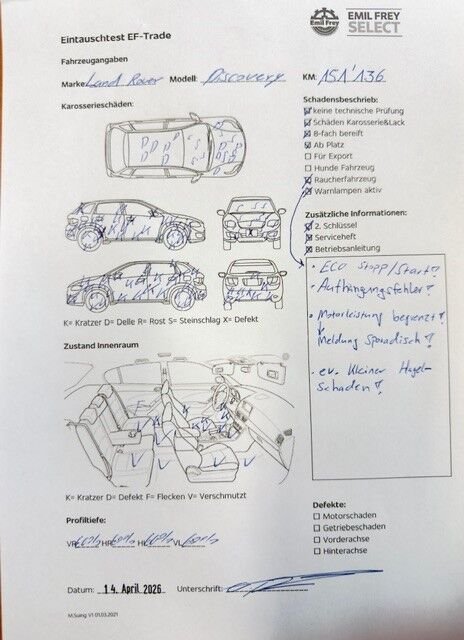 EMIL FREY
SELECT
Emil Frey
Eintauschtest EF-Trade
Fahrzeugangaben
Marke Land Rover Modell: Discovery KM: 151'136
Karosserieschäden:
Schadensbeschrieb:
keine technische Prüfung
Schäden Karosserie&Lack
8-fach bereift
Ab Platz
Für Export
Hunde Fahrzeug
Raucherfahrzeug
Warnlampen aktiv
Zusätzliche Informationen:
2. Schlüssel
Serviceheft
Betriebsanleitung
• ECO Stopp/Start!
• Aufhängungsfehler!
• Motorleistung begrenzt!
Meldung Sporadisch!
• ev. Kleiner Hagel-
Schaden!
K= Kratzer D= Delle R= Rost S= Steinschlag X= Defekt
Zustand Innenraum
K= Kratzer D= Defekt F= Flecken V= Verschmutzt
Profiltiefe:
VR HR HL VL
Defekte:
Motorschaden
Getriebeschaden
Vorderachse
Hinterachse
Datum: 14. April 2026 Unterschrift:
M.Suing V1 01.03.2021